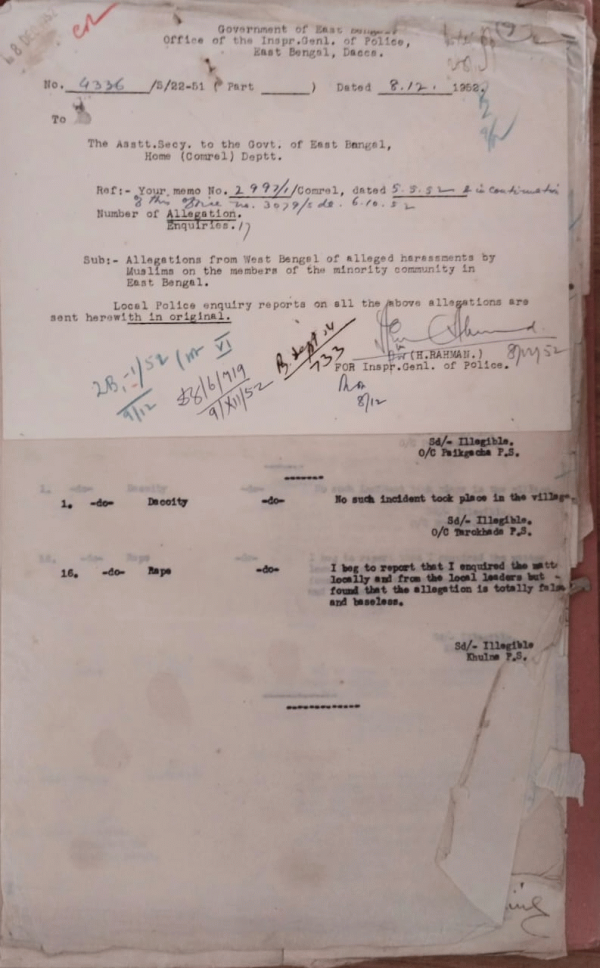 Government of East Bengal
Office of the Inspr.Genl. of Police,
East Bengal, Dacca.
No. 4336 /S/22-51 ( Part ) Dated 8.12. 1952.
To
The Asstt.Secy. to the Govt. of East Bangal,
Home (Comrel) Deptt.
Ref:- Your memo No. 2992/1/Comrel, dated 5.5.52 & in continuation
of this office no. 3079/S dt. 6.10.52
Number of Allegation.
Enquiries. 17
Sub:- Allegations from West Bengal of alleged harassments by
Muslims on the members of the minority community in
East Bengal.
Local Police enquiry reports on all the above allegations are
sent herewith in original.
(H.RAHMAN.) 8/12/52
FOR Inspr.Genl. of Police.
8/12
VI
9/12
9/XII/52
733
Sd/- Illegible.
O/C Paikgacha P.S.
1. -do- Dacoity -do- No such incident took place in the village.
Sd/- Illegible.
O/C Tarokhada P.S.
16. -do- Rape -do- I beg to report that I enquired the
locally and from the local leaders but
found that the allegation is totally
and baseless.
Sd/- Illegible
Khulna P.S.